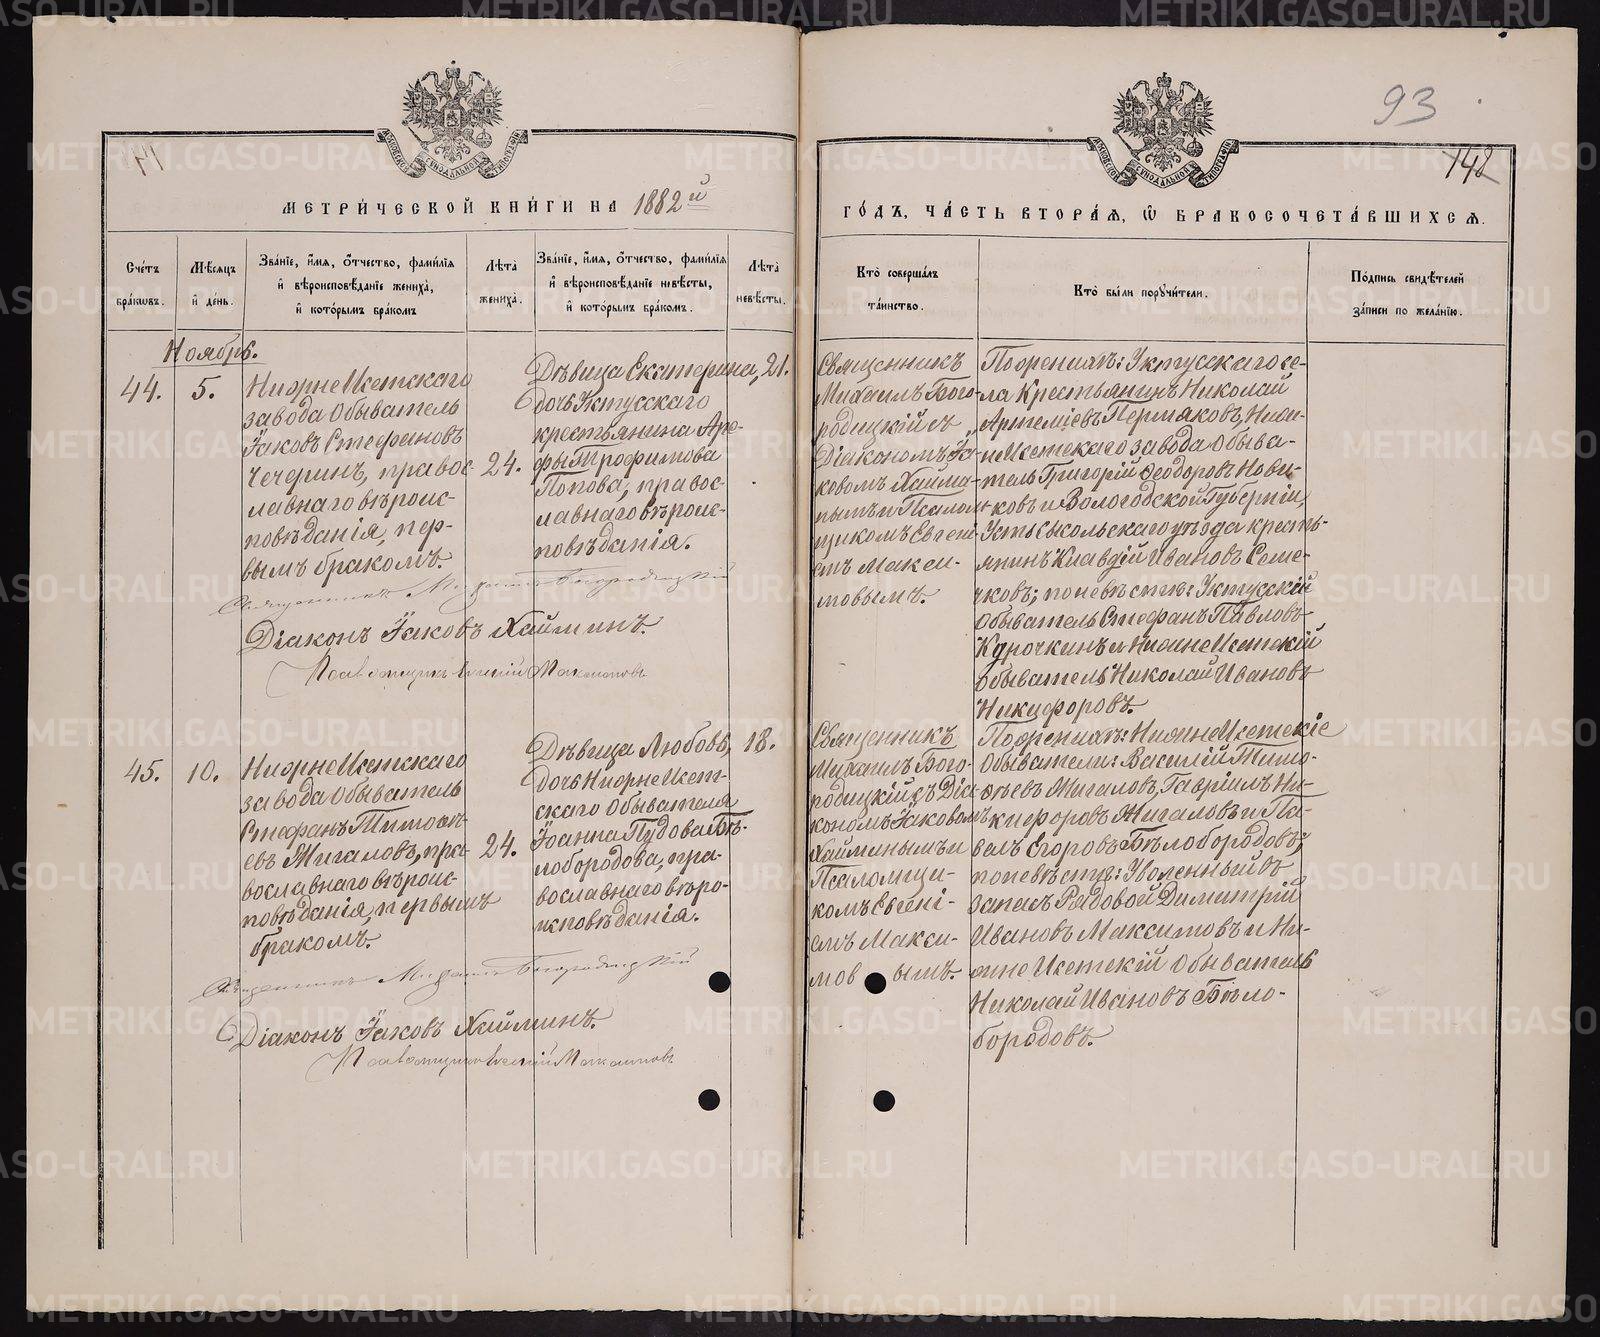 93
142
МЕТРИ́ЧЕСКОЙ КНИ́ГИ НА 1882й
ГО́ДЪ, ЧА́СТЬ ВТОРА́Я, Ѡ БРАКОСОЧЕТА́ВШИХСЯ.
Сче́тъ бра́ковъ.
Мѣ́сяцъ и́ де́нь.
Зва́нїе, и́мя, ѻ́тчество, фами́лїя и́ вѣроисповѣ́данїе жениха̀, и́ кото́рымъ бра́комъ
Лѣта̀ жениха̀.
Зва́нїе, и́мя, ѻ́тчество, фами́лїя и́ вѣроисповѣ́данїе невѣ́сты, и́ кото́рымъ бра́комъ.
Лѣта̀ невѣ́сты.
Кто̀ соверша́лъ та́инство.
Кто̀ бы́ли порꙋчи́тели.
По́дпись свидѣ́телей за́писи по жела́нїю.
Ноябрь.
44.
5.
Нижнеисетскаго
завода обыватель
Іаковъ Стефановъ
Чечеринъ, правос-
лавнаго вѣроис-
повѣданія, пер-
вымъ бракомъ.
24.
Дѣвица Екатерина,
дочь Уктусскаго
крестьянина Аре-
фы Трофимова
Попова, правос-
лавнаго вѣроис-
повѣданія.
21.
Священникъ
Михаилъ Бого-
родицкій съ
Діакономъ Іа-
ковомъ Хайми-
нымъ и Псалом-
щикомъ Евгені-
емъ Макси-
мовымъ.
По женихѣ: Уктусскаго се-
ла Крестьянинъ Николай
Артеміевъ Пермяковъ, Ниж-
неисетскаго завода обыва-
тель Григорій Ѳеодоровъ Нови-
ковъ и Вологодской Губерніи,
Устьсысольскаго уѣзда кресть-
янинъ Клавдій Ивановъ Семе-
чковъ; по невѣстѣ: Уктусскій
обыватель Стефанъ Павловъ
Курочкинъ и Нижнеисетскій
обыватель Николай Ивановъ
Никифоровъ.
Священникъ Михаилъ Богородицкій
Діаконъ Іаковъ Хайминъ.
Псаломщикъ Евгеній Максимовъ
45.
10.
Нижнеисетскаго
завода обыватель
Стефанъ Тимоѳе-
евъ Жигаловъ, пра-
вославнаго вѣроис-
повѣданія, первымъ
бракомъ.
24.
Дѣвица Любовь,
дочь Нижнеисет-
скаго обывателя
Іоанна Пудова Бѣ-
лобородова, пра-
вославнаго вѣро-
исповѣданія.
18.
Священникъ
Михаилъ Бого-
родицкій съ Діа-
кономъ Іаковомъ
Хайминымъ и
Псаломщи-
комъ Евгені-
емъ Макси-
мовымъ.
По женихѣ: Нижнеисетскіе
обыватели: Василій Тимо-
ѳеевъ Жигаловъ, Гавріилъ Ни-
кифоровъ Жигаловъ и Па-
велъ Егоровъ Бѣлобородовъ;
по невѣстѣ: Уволенный въ
запасъ Рядовой Димитрій
Ивановъ Максимовъ и Ни-
жнеисетскій обыватель
Николай Ивановъ Бѣло-
бородовъ.
Священникъ Михаилъ Богородицкій
Діаконъ Іаковъ Хайминъ.
Псаломщикъ Евгеній Максимовъ
METRIKI.GASO-URAL.RU